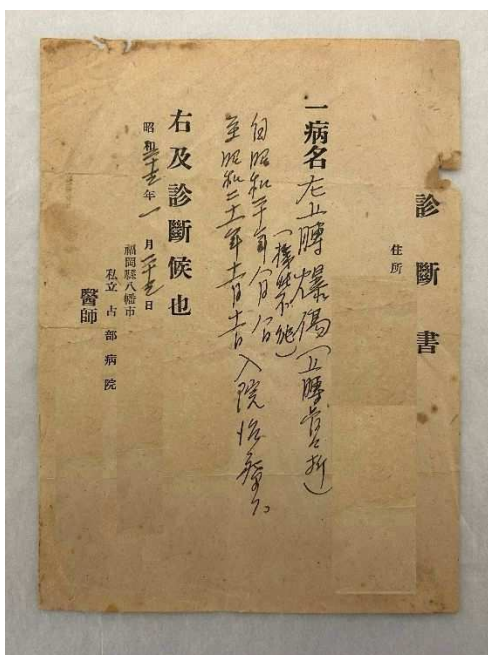 診斷書
住所
一病名 左上膊爆傷(上膊骨折)
自昭和二十年八月八日
至昭和二十一年十一月十一日入院治療ス
右及診斷候也
昭和二十五年一月二十五日
福岡縣八幡市
私立占部病院
醫師